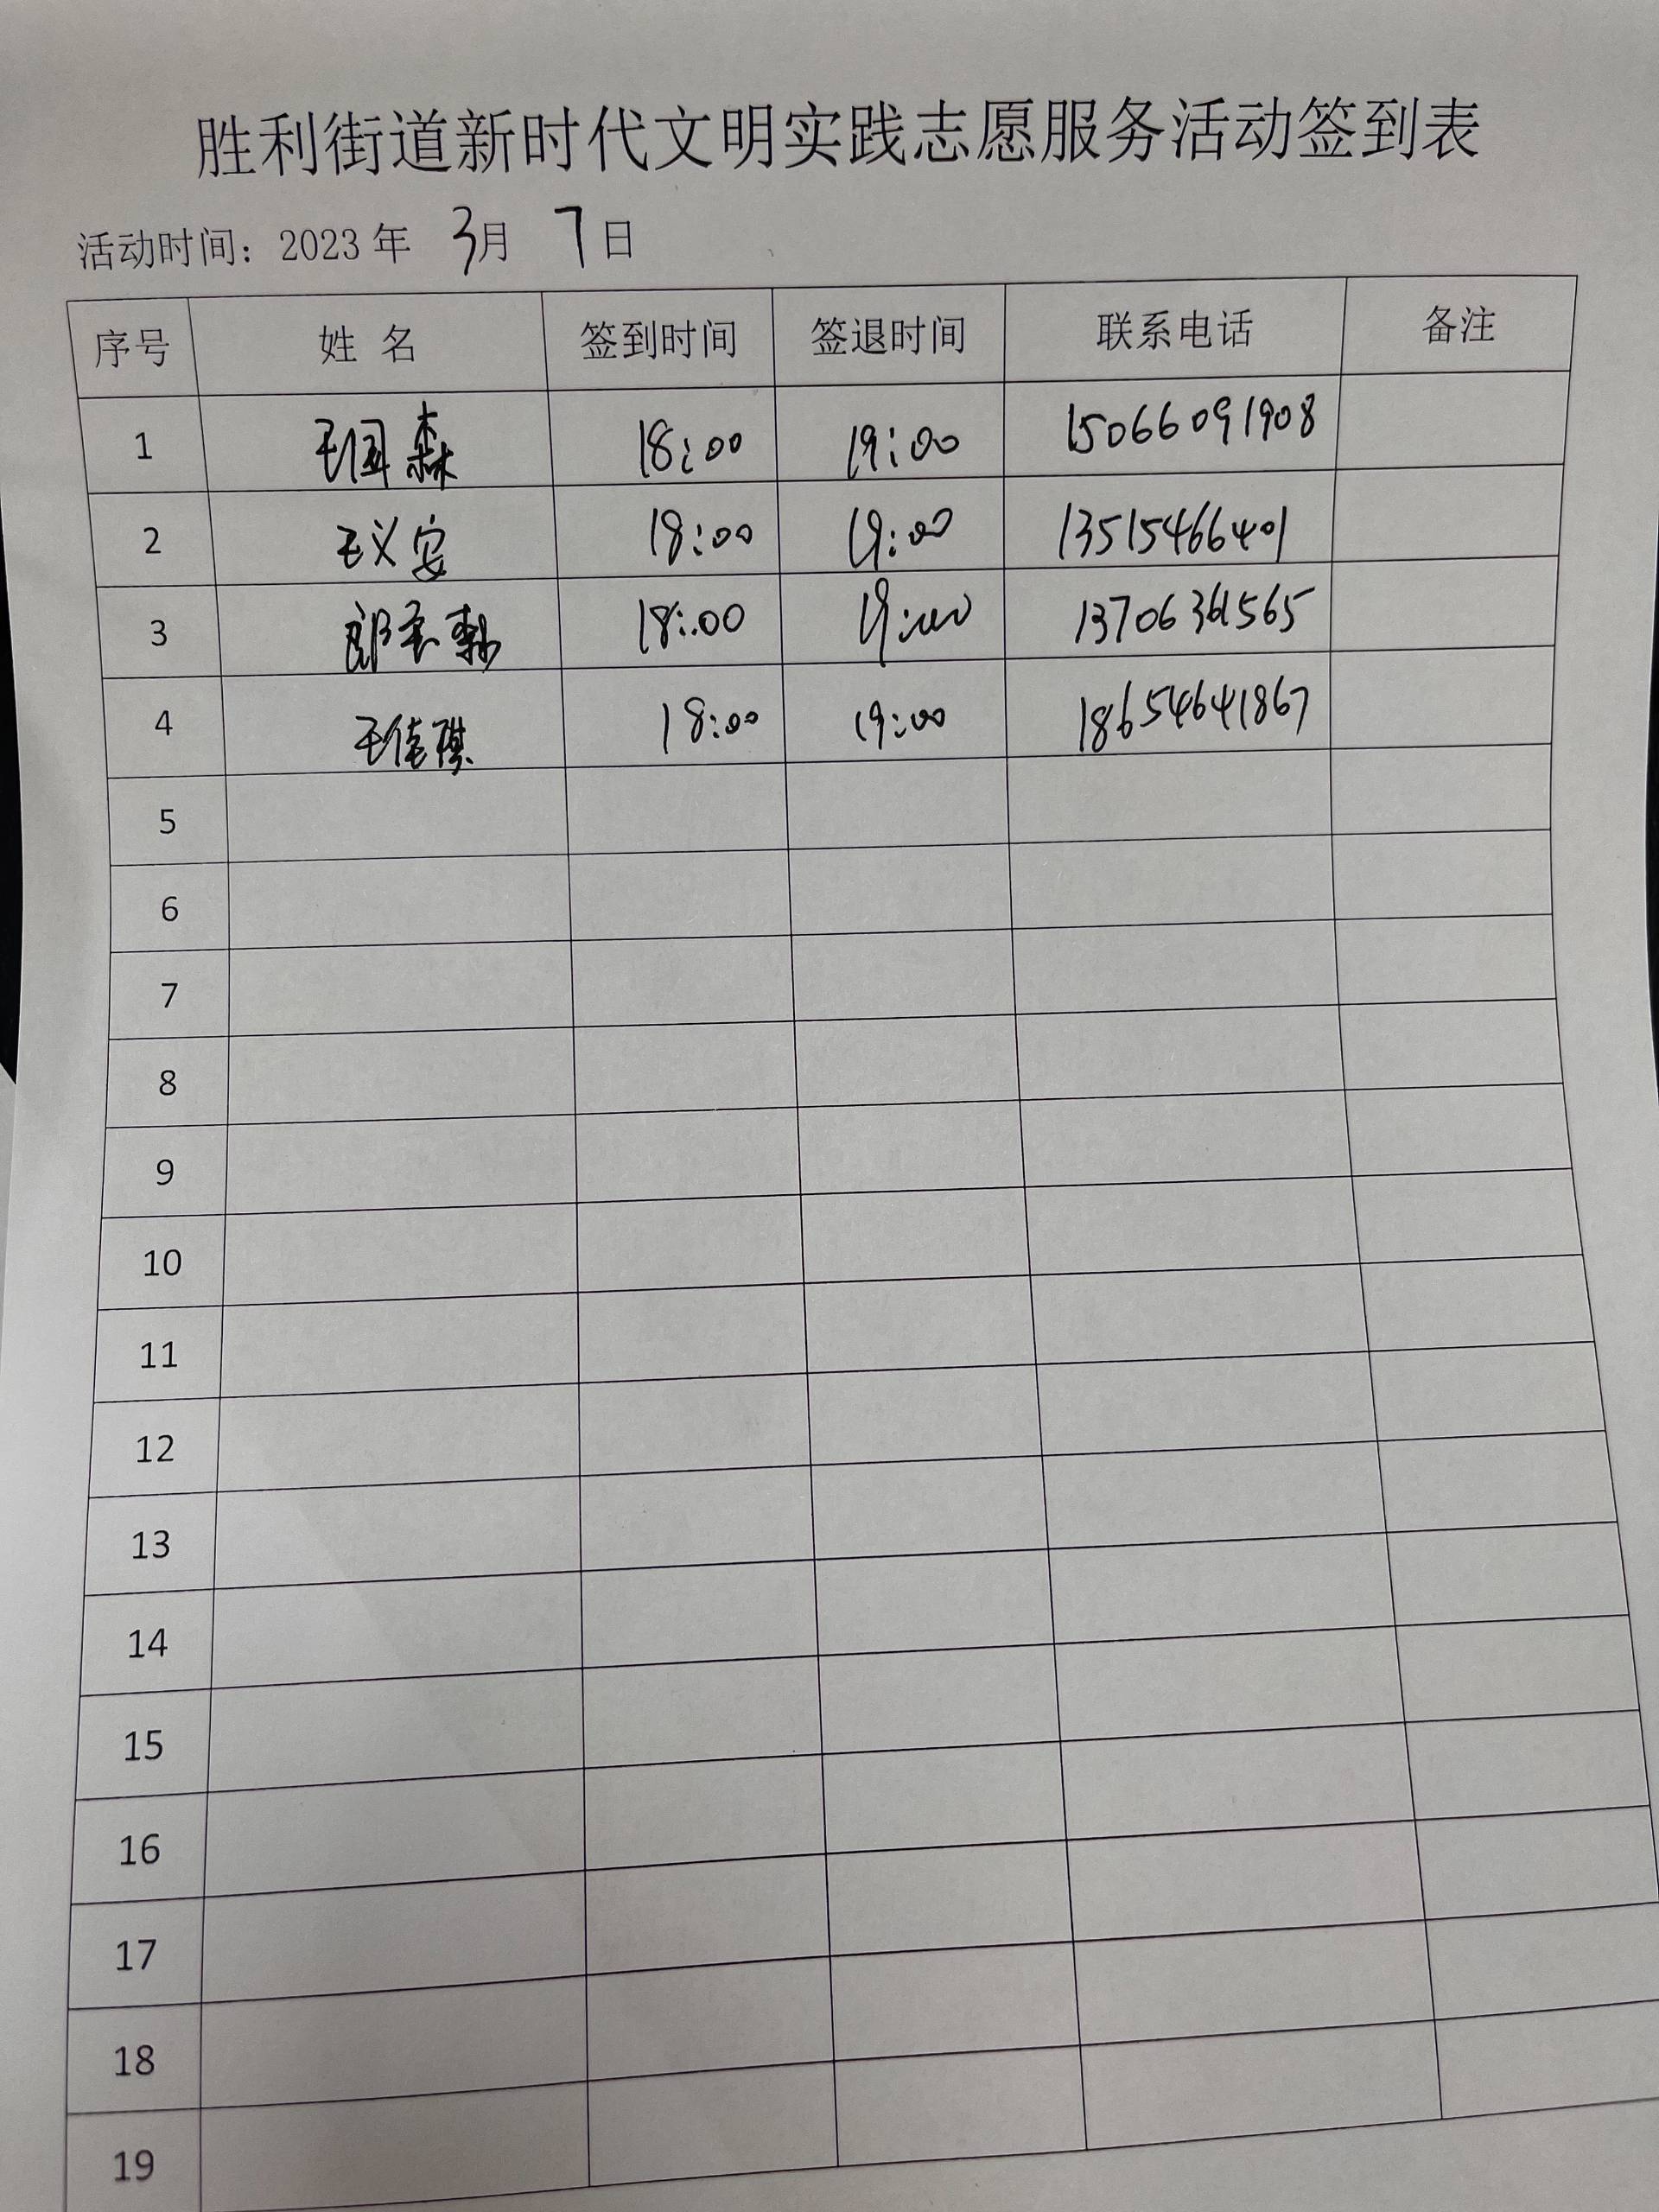 胜利街道新时代文明实践志愿服务活动签到表
活动时间：2023 年 3月 7日
序号 姓 名 签到时间 签退时间 联系电话 备注
1 王国森 18:00 19:00 15066091908
2 王义安 18:00 19:00 13515466401
3 18:00 19:00
4 王佳祺 18:00 19:00 18654641867
5
6
7
8
9
10
11
12
13
14
15
16
17
18
19